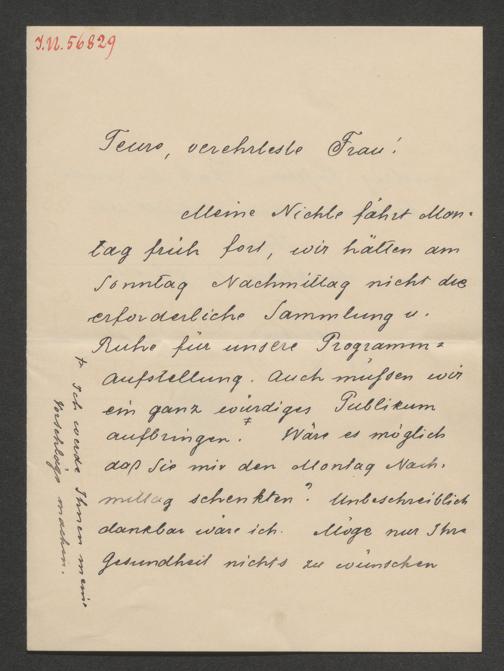 I.N. 56829
Teure, verehrteste Frau!
Meine Nichte fährt Mon-
tag früh fort, wir hätten am
Sonntag Nachmittag nicht die
erforderliche Sammlung u.
Ruhe für unsere Programm-
aufstellung. Auch müßen wir
ein ganz würdiges Publikum
aufbringen.+ Wäre es möglich
daß Sie mir den Montag Nach-
mittag schenkten? Unbeschreiblich
dankbar wäre ich. Möge nur Ihre
Gesundheit nichts zu wünschen
+ Ich werde Ihnen meine
Vorschläge machen.